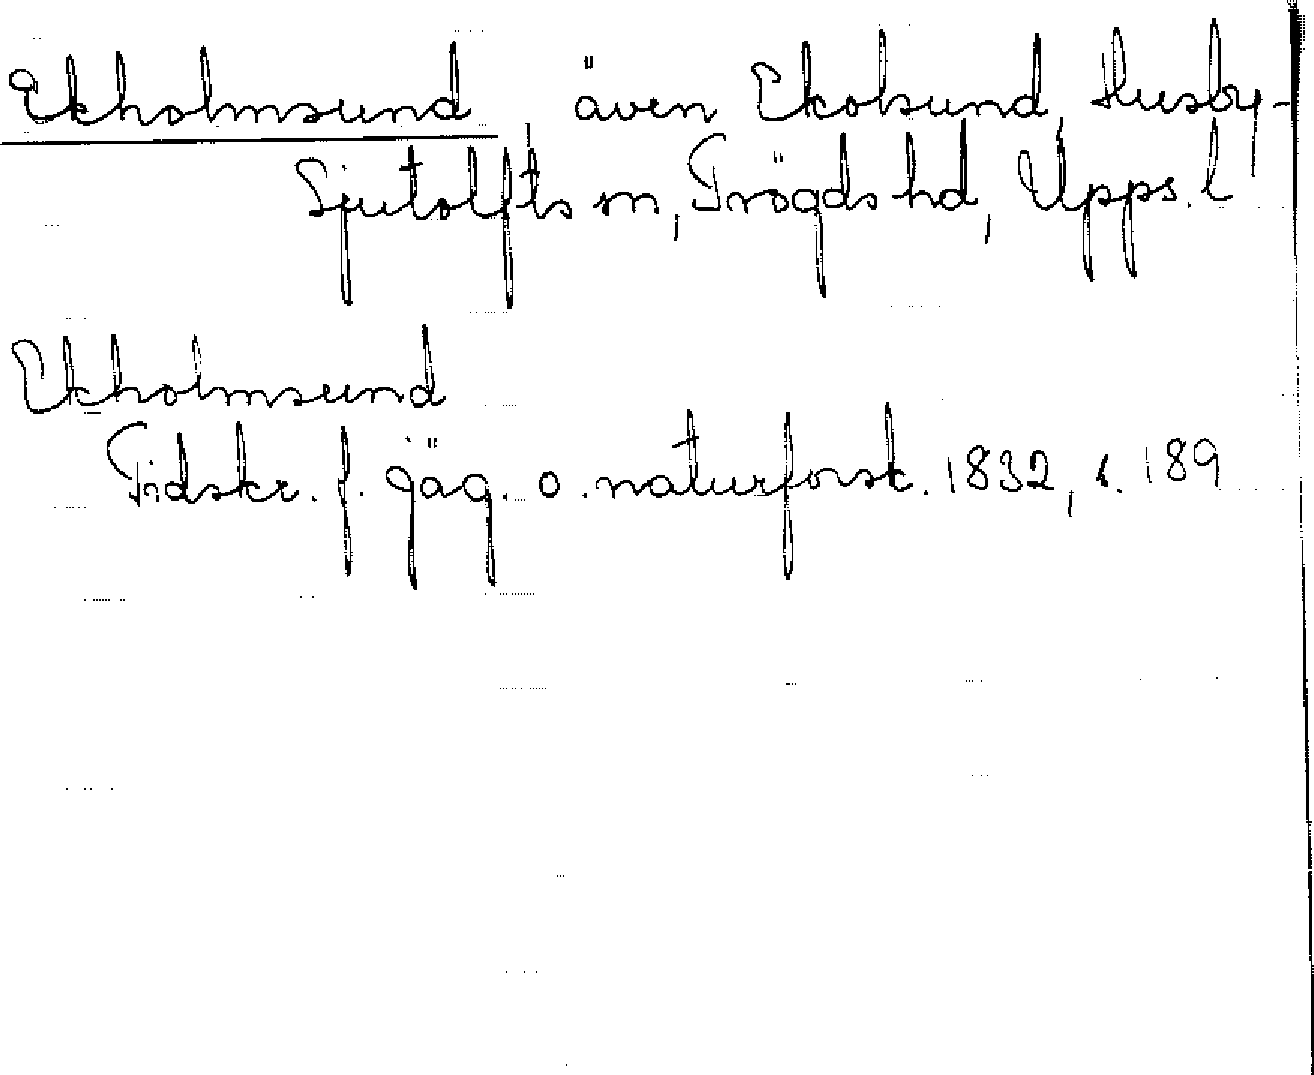 Ekholmsund, även Ekolsund, Husby-
Sjutolfts sn, Trögds hd, Upps. l
Ekholmsund
Tidskr. f. jäg. o. naturforsk. 1832, s. 189